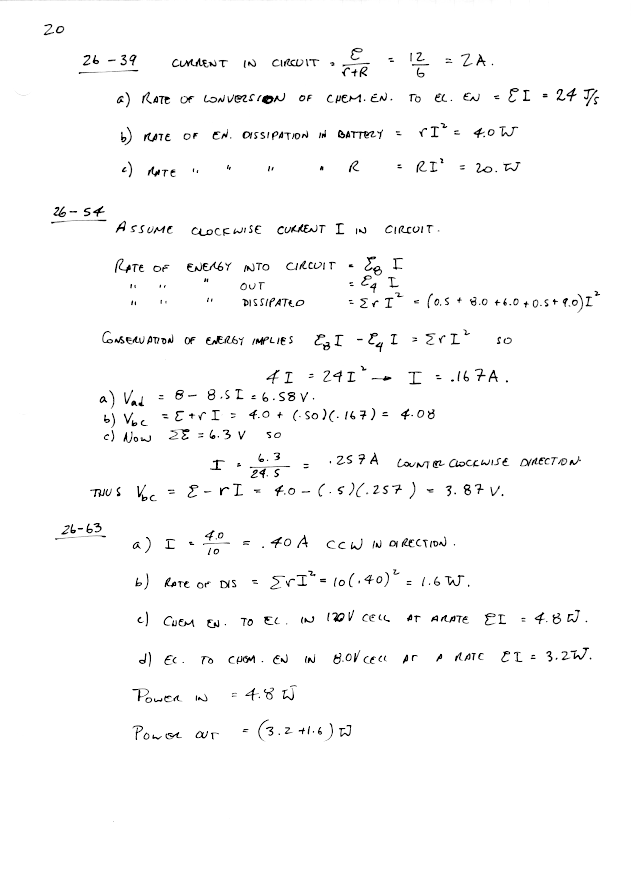 20
26-39 CURRENT IN CIRCUIT = ℰ/(r+R) = 12/6 = 2A.
a) RATE OF CONVERSION OF CHEM. EN. TO EL. EN = ℰI = 24 J/s
b) RATE OF EN. DISSIPATION IN BATTERY = rI² = 4.0 W
c) RATE " " " " R = RI² = 20. W
26-54
ASSUME CLOCKWISE CURRENT I IN CIRCUIT.
RATE OF ENERGY INTO CIRCUIT = ℰ₈ I
" " " OUT = ℰ₄ I
" " " DISSIPATED = ΣrI² = (0.5 + 8.0 + 6.0 + 0.5 + 9.0)I²
CONSERVATION OF ENERGY IMPLIES ℰ₈I - ℰ₄I = ΣrI² SO
4I = 24I² → I = .167A.
a) Vad = 8 - 8.5I = 6.58V.
b) Vbc = ℰ+rI = 4.0 + (.50)(.167) = 4.08
c) NOW Σℰ = 6.3 V SO
I = 6.3/24.5 = .257A COUNTER CLOCKWISE DIRECTION
THUS Vbc = ℰ-rI = 4.0 - (.5)(.257) = 3.87 V.
26-63
a) I = 4.0/10 = .40 A CCW IN DIRECTION.
b) RATE OF DIS = ΣrI² = 10(.40)² = 1.6 W.
c) CHEM EN. TO EL. IN 120V CELL AT A RATE ℰI = 4.8 W.
d) EL. TO CHEM. EN IN 8.0V CELL AT A RATE ℰI = 3.2W.
POWER IN = 4.8 W
POWER OUT = (3.2 + 1.6) W